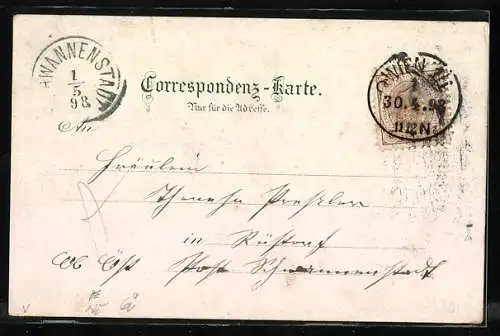 SCHWANNENSTADT
1
5
98
WIEN
30.4.98
Correspondenz-Karte.
Nur für die Adresse.
An
Fräulein
in Rüstorf
Ob Öst Post Schwannenstadt